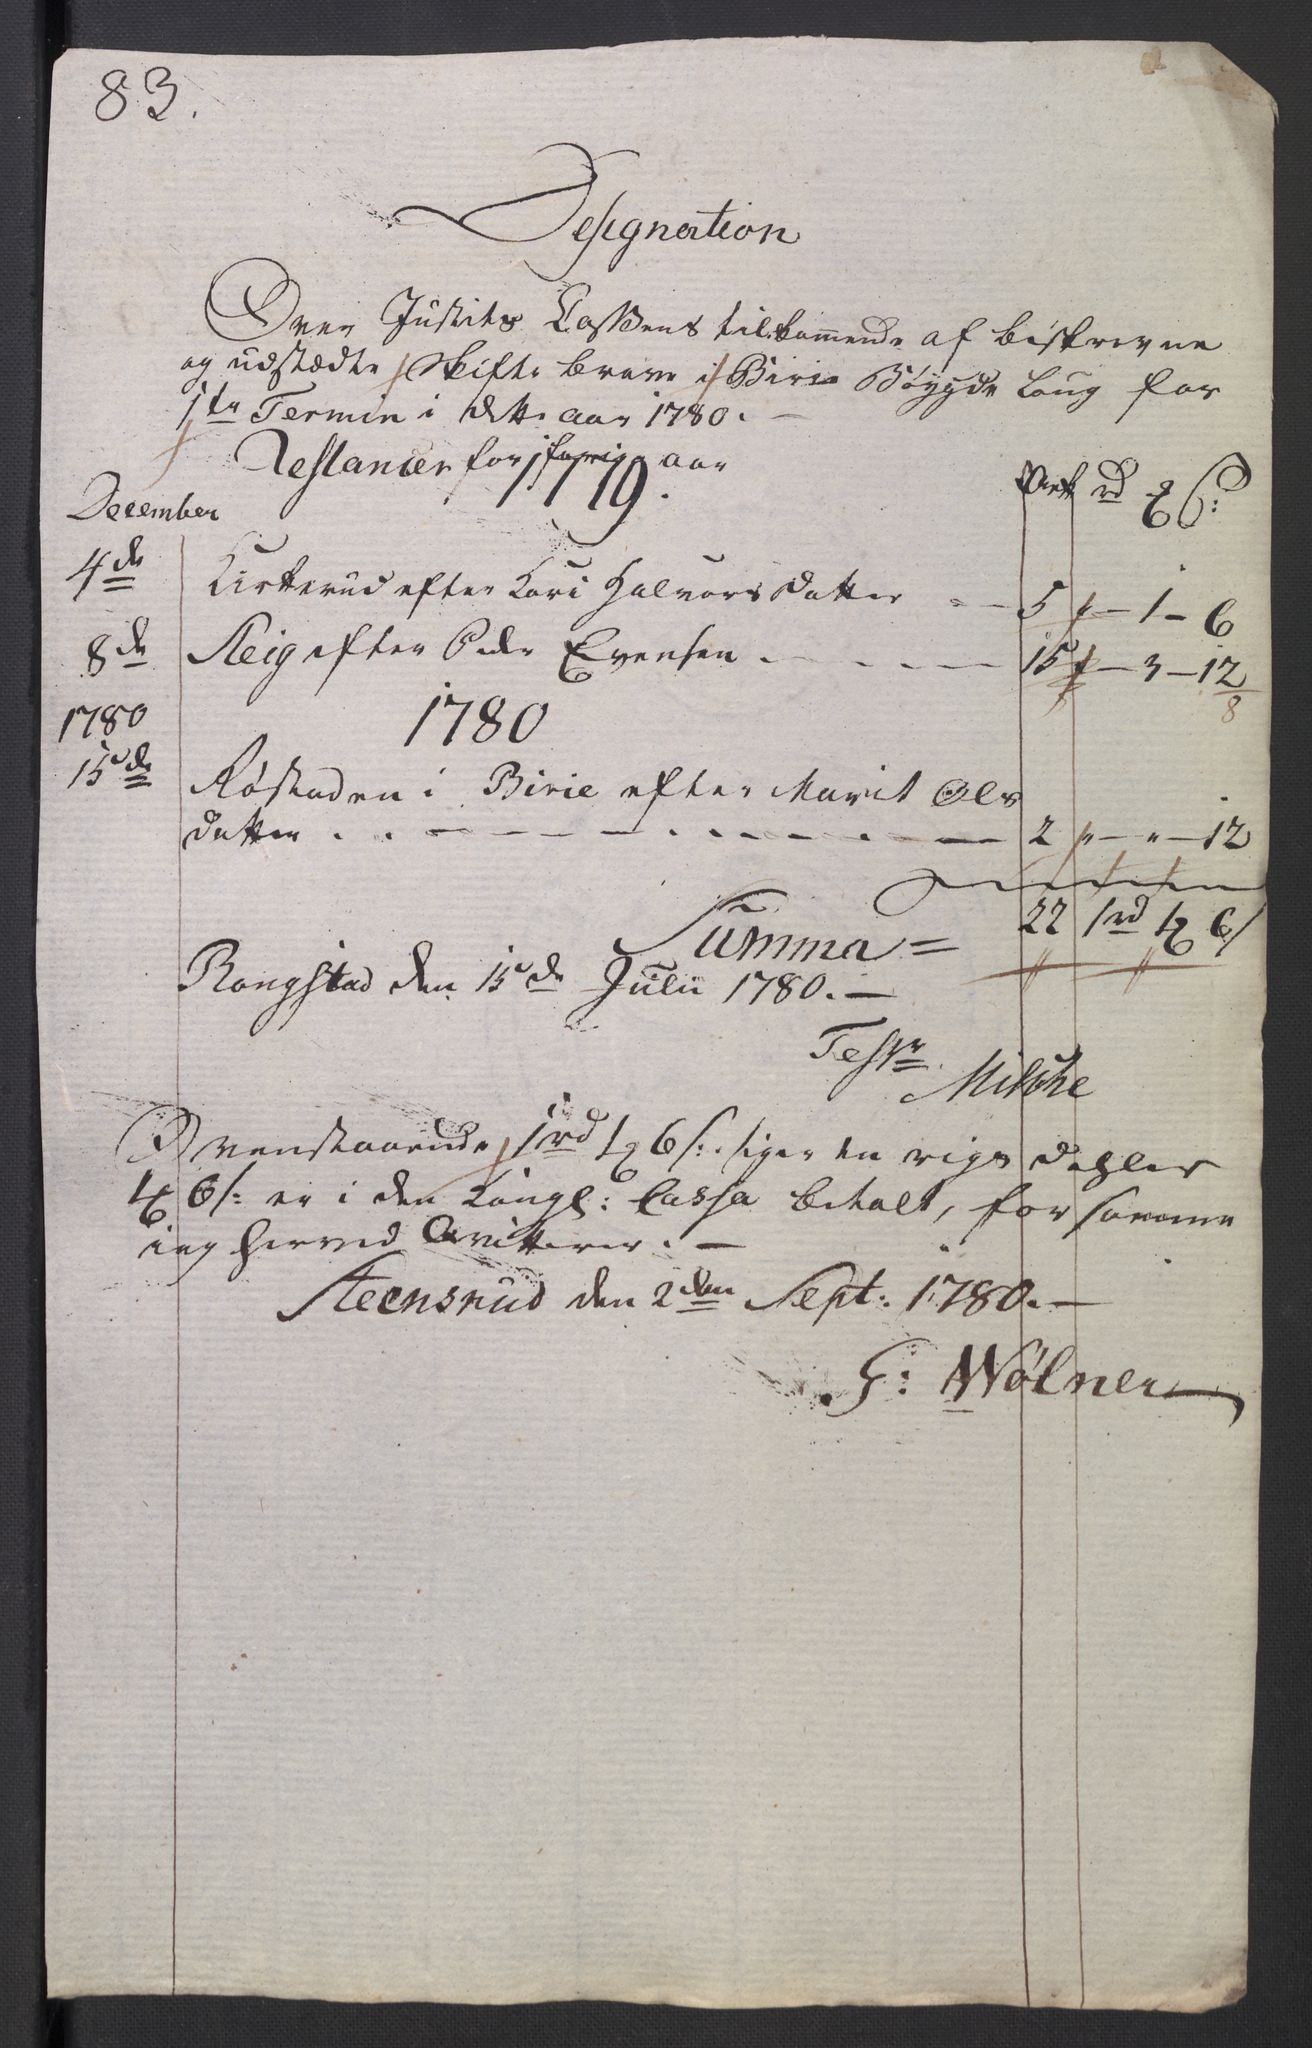 83.
Designation
Over Justits Cassens tilkommende af beskrevne
og udstædte Skifte breve i Birie Bøygde Laug for
1ste Termin i dette aar 1780. —
Restancer for forrig aar
1779.
Ark rd ß:
December
4de Kirkerud efter Kari Halvors Datter — 5 „ — 1 — 6
8de Steig efter Peder Evensen — 15 „ — 3 — 12
8
1780 1780
15de Røstaden i Birie efter Marit Ols
datter — 2 „ — „ — 12
Summa = 22 1rd 1 6/
Rongstad den 15de Julii 1780. —
Testr
Mitche
Ovenstaaende 1rd 1 6 s: siger en rigs dahler
1 6 s: er i den Kongl: Cassa betalt, for samme
ieg herved Qvitterer. —
Steensrud den 2den Sept: 1780. —
G: Wølner